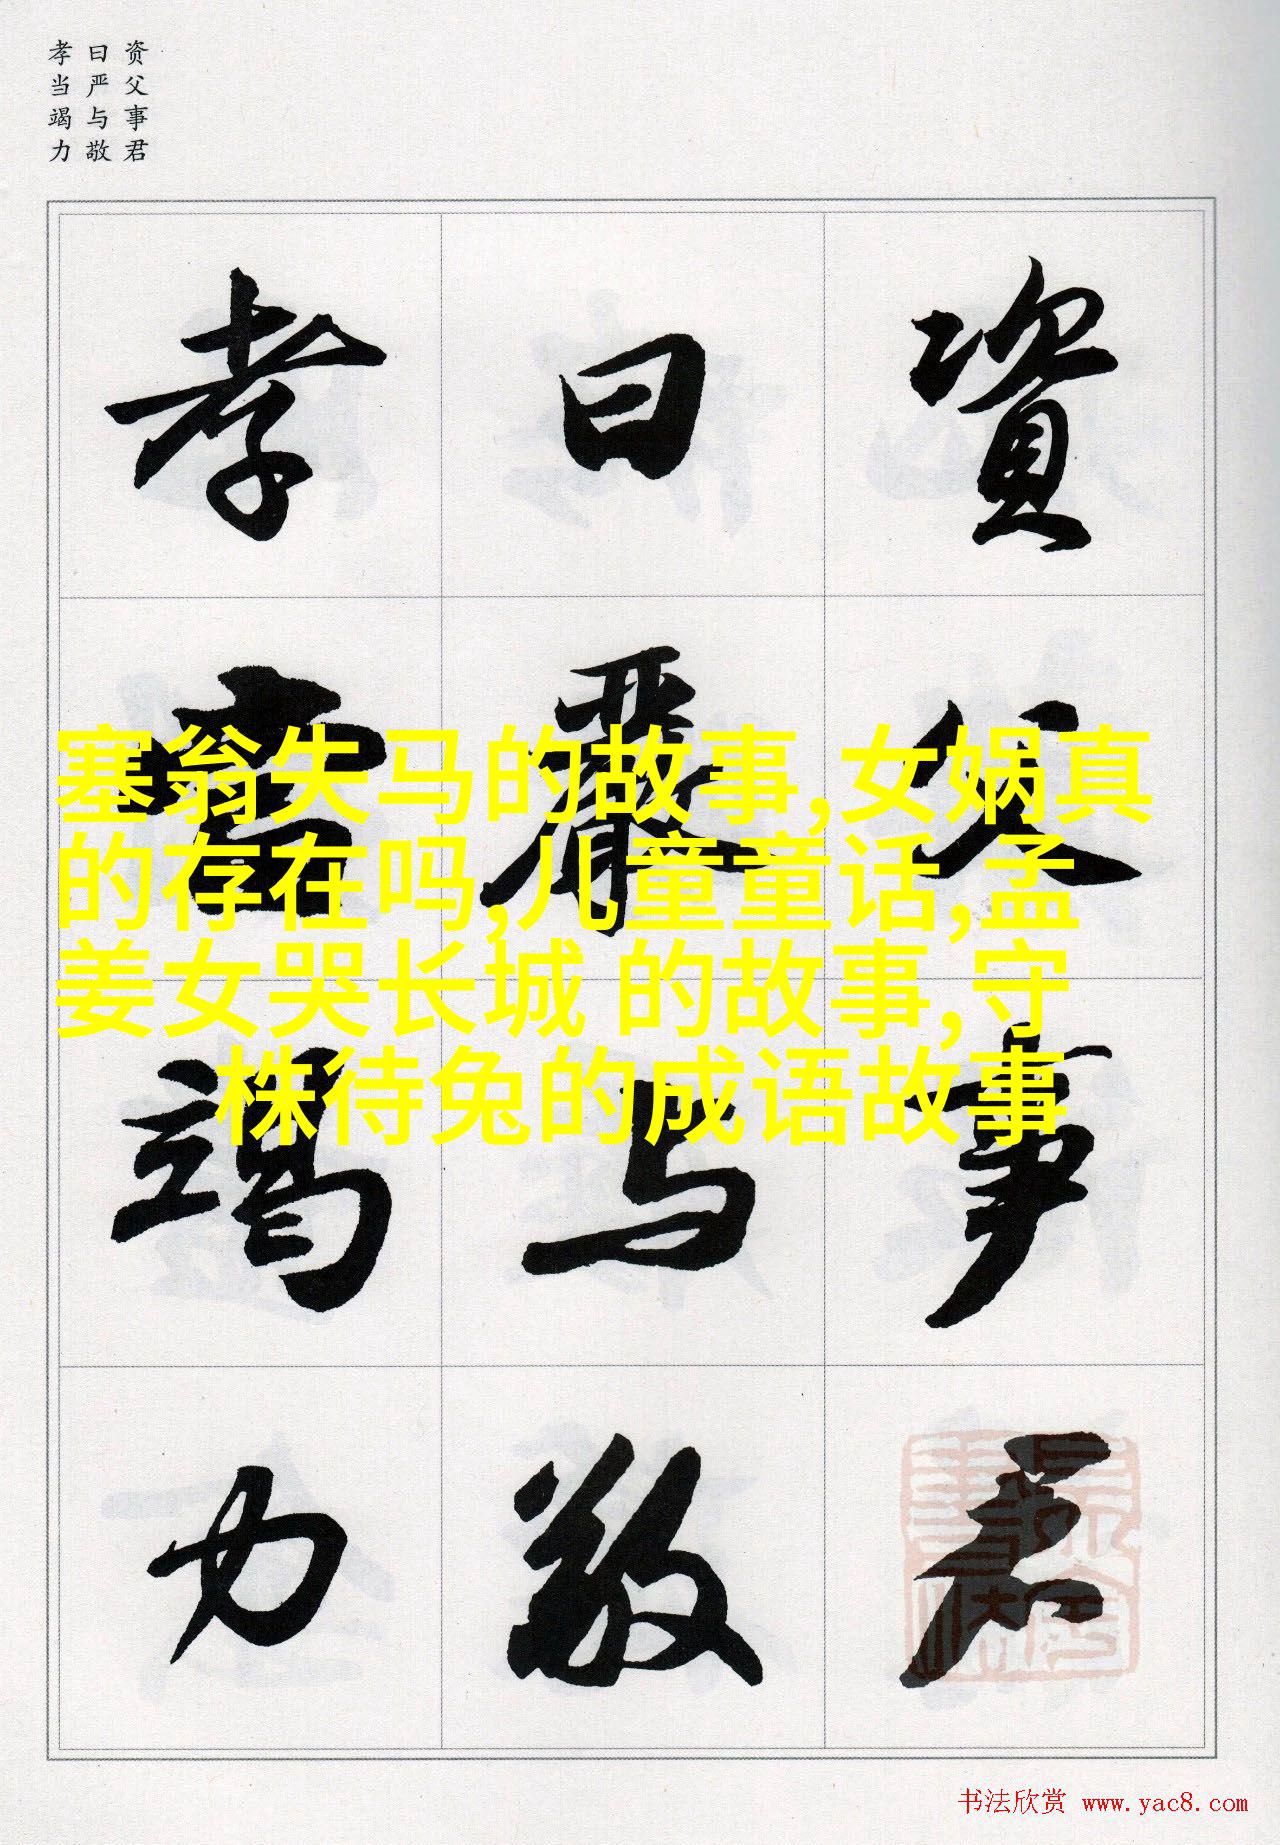 资父事君
曰严与敬
孝当竭力
資父事君
曰嚴与敬
孝當竭力
塞翁失马的故事,女娲真
的存在吗,儿童童话,孟
姜女哭长城 的故事,守
株待兔的成语故事
书法欣赏 www.yac8.com